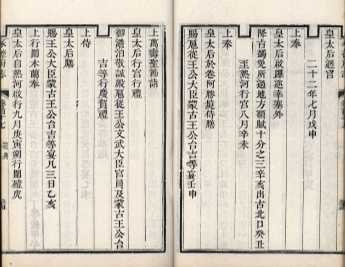 皇太后迴宮
二十二年七月戊申
上奉
皇太后啟蹕巡幸塞外
降吉蠲免所過地方額賦十分之三辛亥出古北口癸丑
至熱河行宮八月辛未
上奉
皇太后於卷阿勝境侍膳
賜扈從王公大臣蒙古王公台吉等宴壬申
上萬壽聖節詣
皇太后行宮行禮
御澹泊敬誠殿扈從王公文武大臣官員及蒙古王公台
吉等行慶賀禮
上侍
皇太后膳
賜王公大臣蒙古王公台吉等宴凡三日乙亥
上行圍木蘭奉
皇太后自熱河啟行九月庚寅朔行圍殪虎